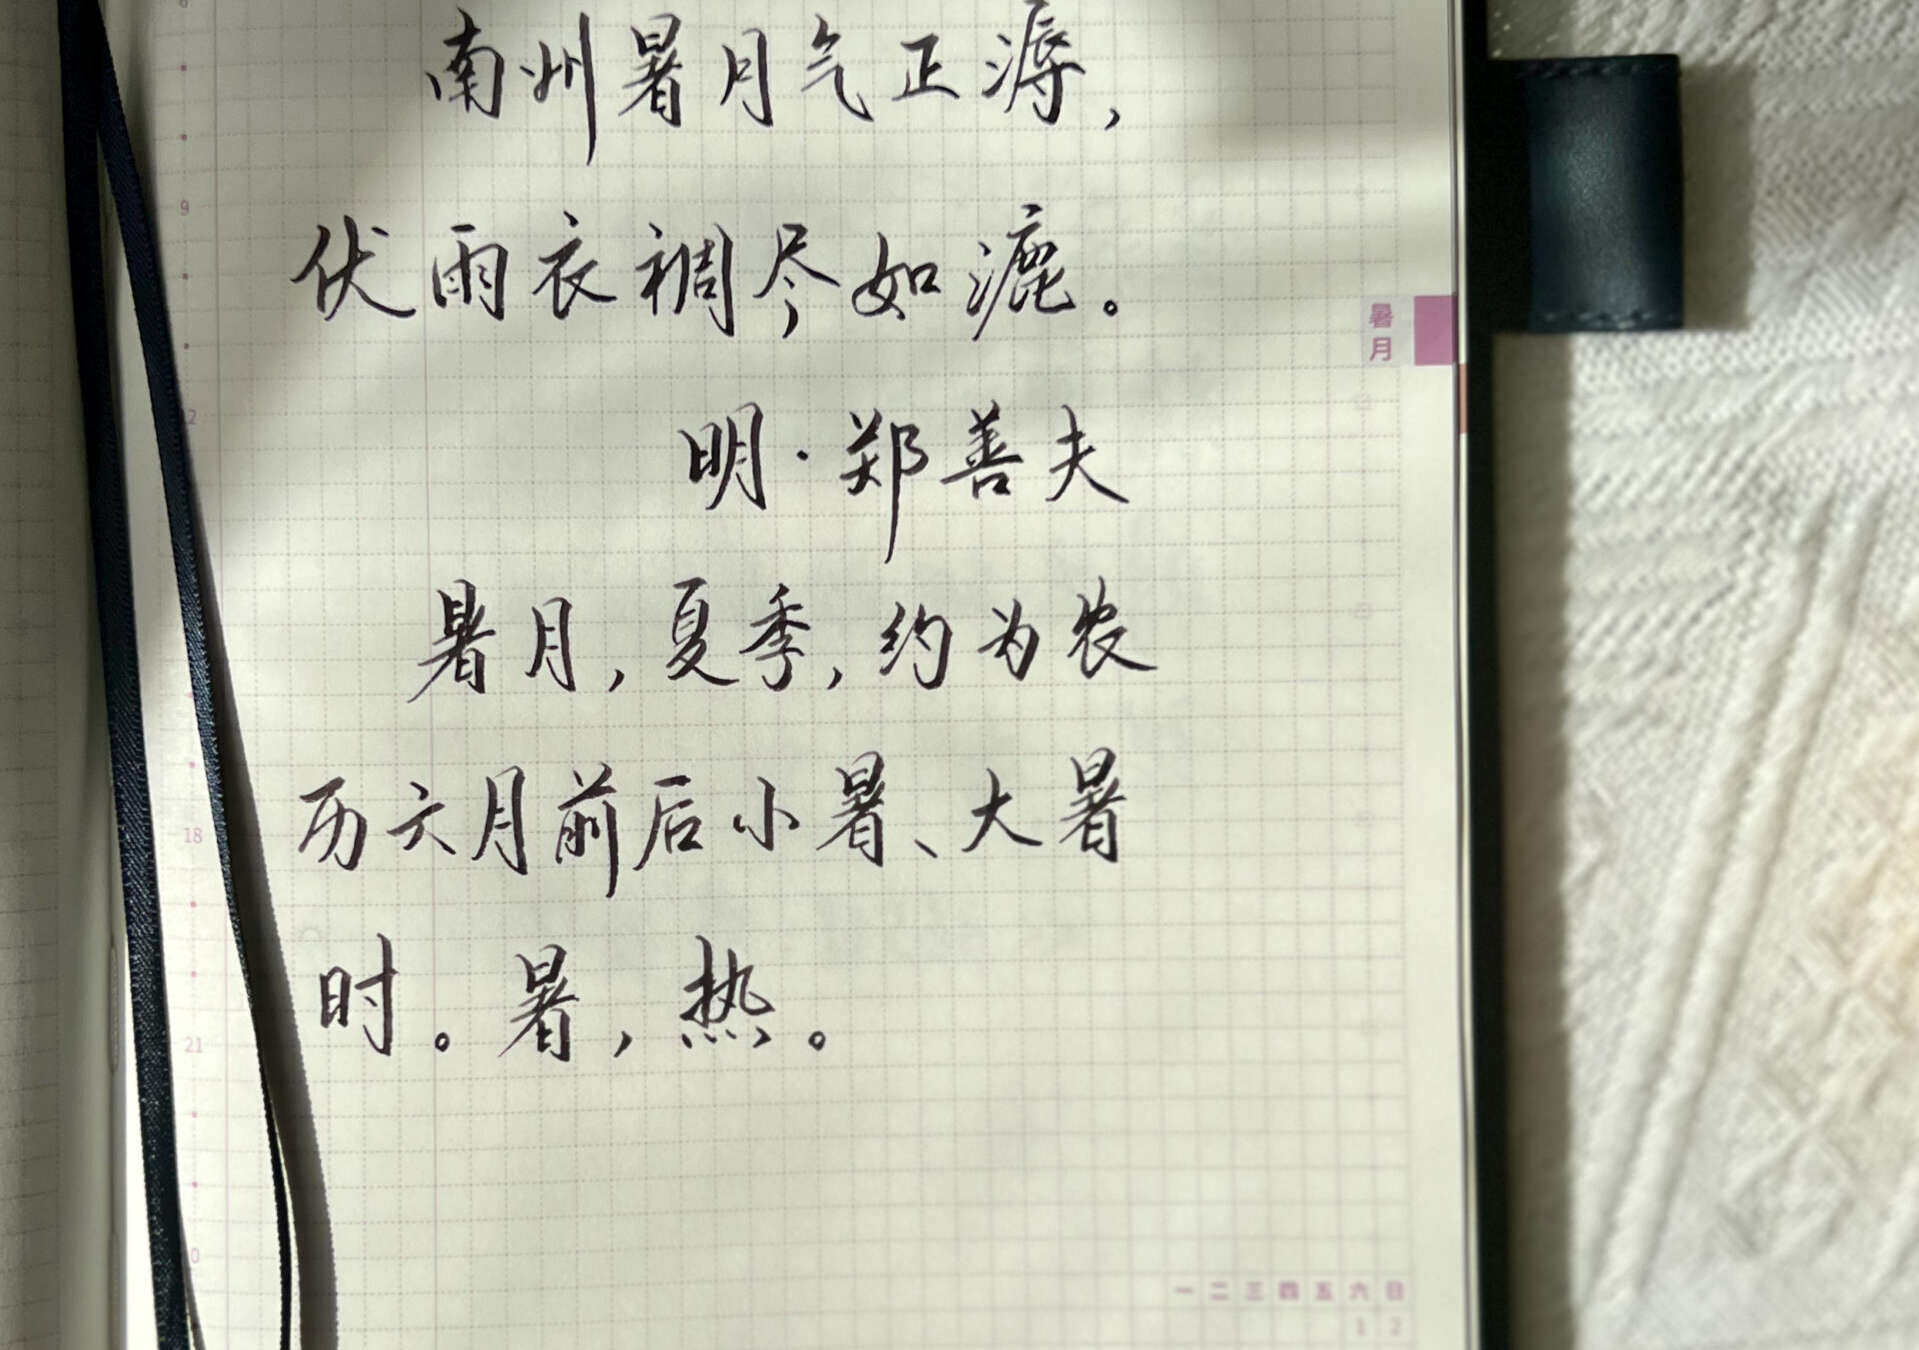 南州暑月气正溽,
伏雨衣裯尽如漉。
明·郑善夫
暑月,夏季,约为农
历六月前后小暑、大暑
时。暑,热。
暑月
9
18
21
一 二 三 四 五 六 日
1 2